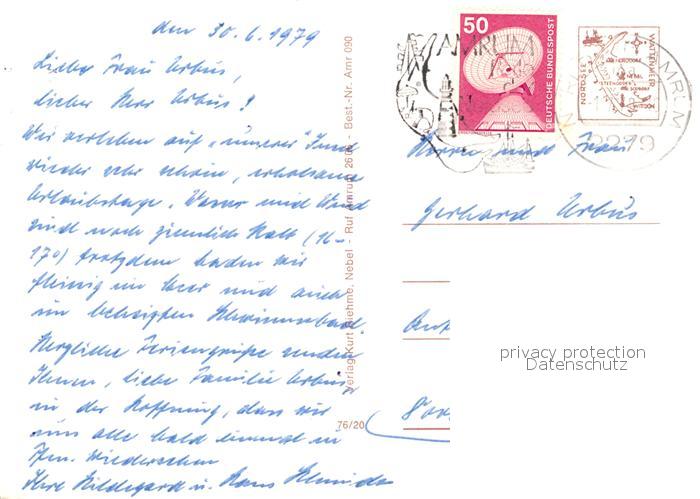 den 30.6.1979
Liebe Frau Urbus,
lieber Herr Urbus!
Wir verleben auf "unserer" Insel
wieder sehr schöne, erholsame
Urlaubstage. Wasser und Wind
sind noch ziemlich kalt (16-
17°) trotzdem baden wir
fleißig im Meer und auch
im beheizten Schwimmbad.
Herzliche Feriengrüße senden
Ihnen, liebe Familie Urbus
in der Hoffnung, dass wir
uns alle bald einmal in
wiedersehen
Ihre Hildegard u. Hans
Verlag Kurt Biehme, Nebel - Ruf Amrum 26 - Best.-Nr. Amr 090
76/20
50
DEUTSCHE BUNDESPOST
AMRUM
NORDSEE
WATTENMEER
AMRUM
2279
Herrn und Frau
Gerhard Urbus
privacy protection
Datenschutz